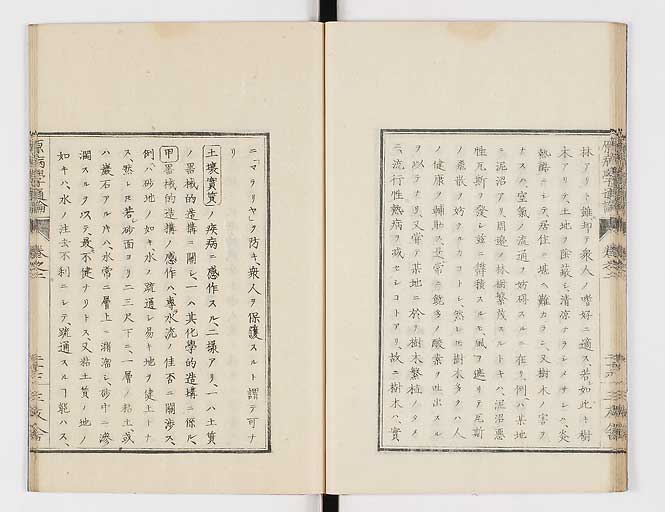 林アリト雖却テ衆人ノ嗜好ニ適ス、若如此キ樹
木アリテ土地ヲ陰蔽シ清凉ナラシメサレハ、炎
熱ニシテ居住ニ堪ヘ難カラン、又樹木ノ害ヲ
ナスハ、空氣ノ流通ヲ妨碍スルニ在リ、例ハ某地
ニ泥沼アリ、周邊ノ林樹繁茂スルトキハ泥沼悪
性瓦斯ヲ發シ並ニ蘊積スルモ、風ヲ遮リテ瓦斯
ノ飛散ヲ妨クルカコトシ、然レモ樹木多クハ人
ノ健康ヲ輔助ス、是常ニ饒多ノ酸素ヲ吐出スル
ヲ以テナリ、又嘗テ某地ニ於テ樹木繁植ノタメ
ニ、流行性熱病ヲ減セシコトアリ、故ニ樹木ハ、實
ニ「マラリヤ」ヲ防キ、衆人ヲ保護スルト謂テ可ナ
リ
土壤實質ノ疾病ニ感作スル、二様アリ、一ハ土質
ノ器械的造搆ニ關シ、一ハ其化學的造搆ニ係ル、
甲器械的造搆ノ感作ハ、專水流ノ佳否ニ關渉ス、
例ハ砂地ノ如キ、水ノ疏通シ易キ地ヲ健土トナ
ス、然レモ若シ砂面ヨリ二三尺下ニ、一層ノ粘土、或
ハ巖石アルトキハ、水常ニ層上ニ瀦溜シ、砂中ニ滲
濶スルヲ以テ、最不健ナリトス、又粘土質ノ地ノ
如キハ、水ノ注去不利ニシテ、疏通スルコ能ハス、
原病學通論
卷之二